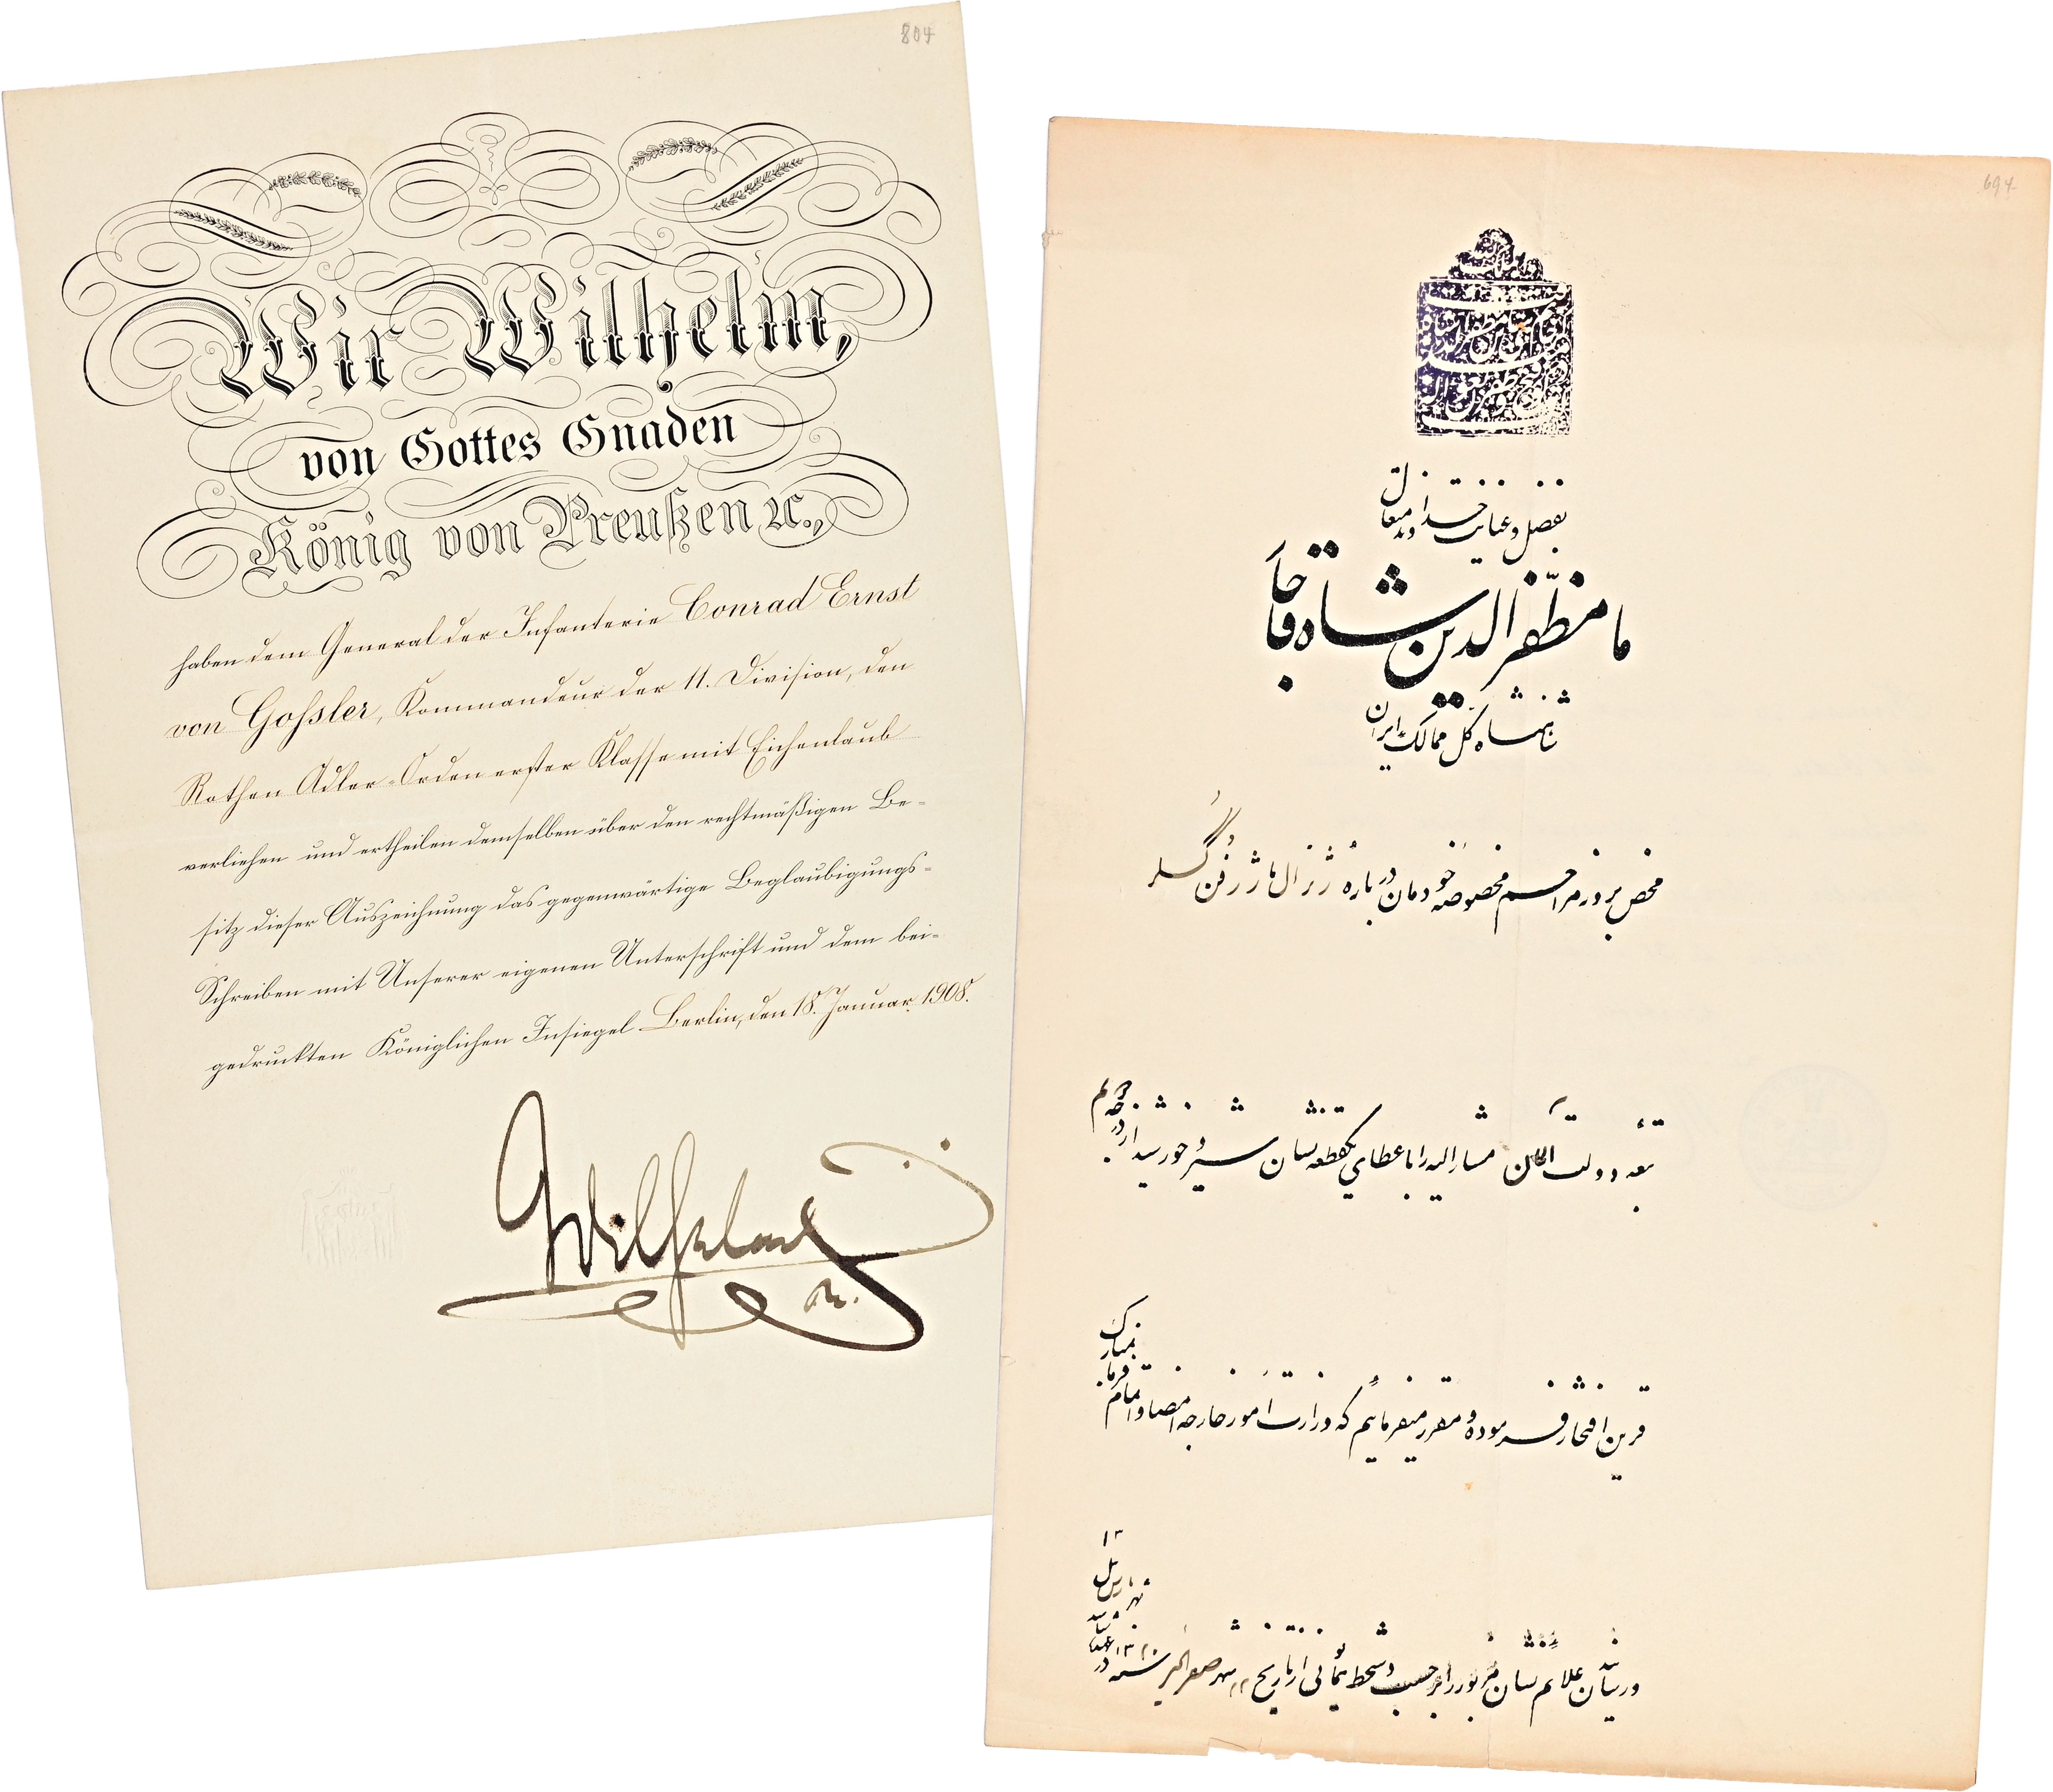 804
Wir Wilhelm,
von Gottes Gnaden
König von Preußen ꝛc.,
haben dem General der Infanterie Conrad Ernst
von Gossler, Kommandeur der 11. Division, den
Rothen Adler-Orden erster Klasse mit Eichenlaub
verliehen und ertheilen demselben über den rechtmäßigen Be-
sitz dieser Auszeichnung das gegenwärtige Beglaubigungs-
Schreiben mit Unserer eigenen Unterschrift und dem bei-
gedruckten Königlichen Insiegel. Berlin, den 18. Januar 1908.
Wilhelm
R.
694
بفضل و عنایت خداوند متعال
ما مظفرالدین شاه قاجار
شاهنشاه کل ممالک ایران
محض بروز مراحم مخصوصه خودمان درباره ژنرال ماژر فن گسلر
تبعه دولت آلمان مشارالیه را باعطای یکقطعه نشان شیر و خورشید از درجه
قرین افتخار فرموده و مقرر میفرمائیم که وزارت امور خارجه امضا و اتمام فرمان مبارک
و رسیدن علائم نشان مزبور را بر حسب دستخط از تاریخ شهر صفر الخیر سنه ۱۳۲۰ در